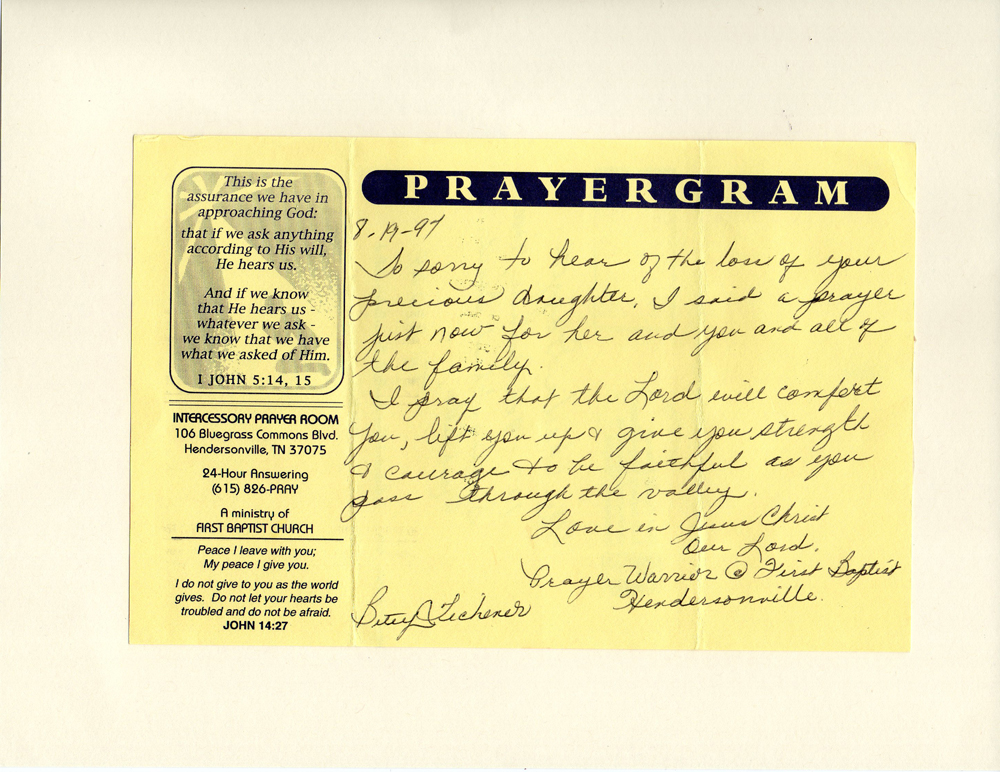 This is the
assurance we have in
approaching God:
that if we ask anything
according to His will,
He hears us.
And if we know
that He hears us -
whatever we ask -
we know that we have
what we asked of Him.
I JOHN 5:14, 15
INTERCESSORY PRAYER ROOM
106 Bluegrass Commons Blvd.
Hendersonville, TN 37075
24-Hour Answering
(615) 826-PRAY
A ministry of
FIRST BAPTIST CHURCH
Peace I leave with you;
My peace I give you.
I do not give to you as the world
gives. Do not let your hearts be
troubled and do not be afraid.
JOHN 14:27
PRAYERGRAM
8-19-97
So sorry to hear of the loss of your
precious daughter. I said a prayer
just now for her and you and all of
the family.
I pray that the Lord will comfort
you, lift you up & give you strength
& courage to be faithful as you
pass through the valley.
Love in Jesus Christ
Our Lord.
Prayer Warrior @ First Baptist
Hendersonville.